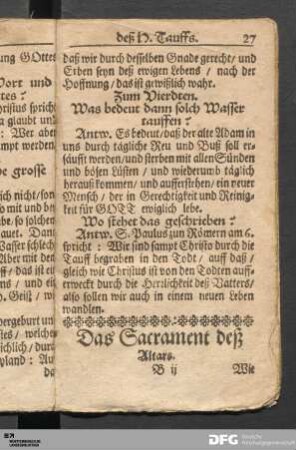 ung GOttes
Wort und
ristus spricht
a glaubt und
: Wer aber
mpt werden.
e grosse
ich nicht/son
o mit und be
be/ so solchen
auet. Dann
Wasser schlecht
Aber mit dem
ff/ das ist ein
ns/ und ein
h. Geist/ wie
ergeburt und
welchen
ichlich/ durch
yland: Auff
da
deß H. Tauffs. 27
daß wir durch desselben Gnade gerecht/ und
Erben seyn deß ewigen Lebens/ nach der
Hoffnung/ das ist gewißlich wahr.
Zum Vierdten.
Was bedeut dann solch Wasser
tauffen?
Antw. Es bedeut/ daß der alte Adam in
uns durch tägliche Reu und Buß soll er-
säufft werden/ und sterben mit allen Sünden
und bösen Lüsten/ und wiederumb täglich
herauß kommen/ und aufferstehen/ ein neuer
Mensch/ der in Gerechtigkeit und Reinig-
keit für GOTT ewiglich lebe.
Wo stehet das geschrieben?
Antw. S. Paulus zun Römern am 6.
spricht: Wir sind sampt Christo durch die
Tauff begraben in den Todt/ auff daß/
gleich wie Christus ist von den Todten auff-
erweckt durch die Herrlichkeit deß Vatters/
also sollen wir auch in einem neuen Leben
wandlen.
Das Sacrament deß
Altars.
B ij Wie
DFG
Deutsche
Forschungsgemeinschaft